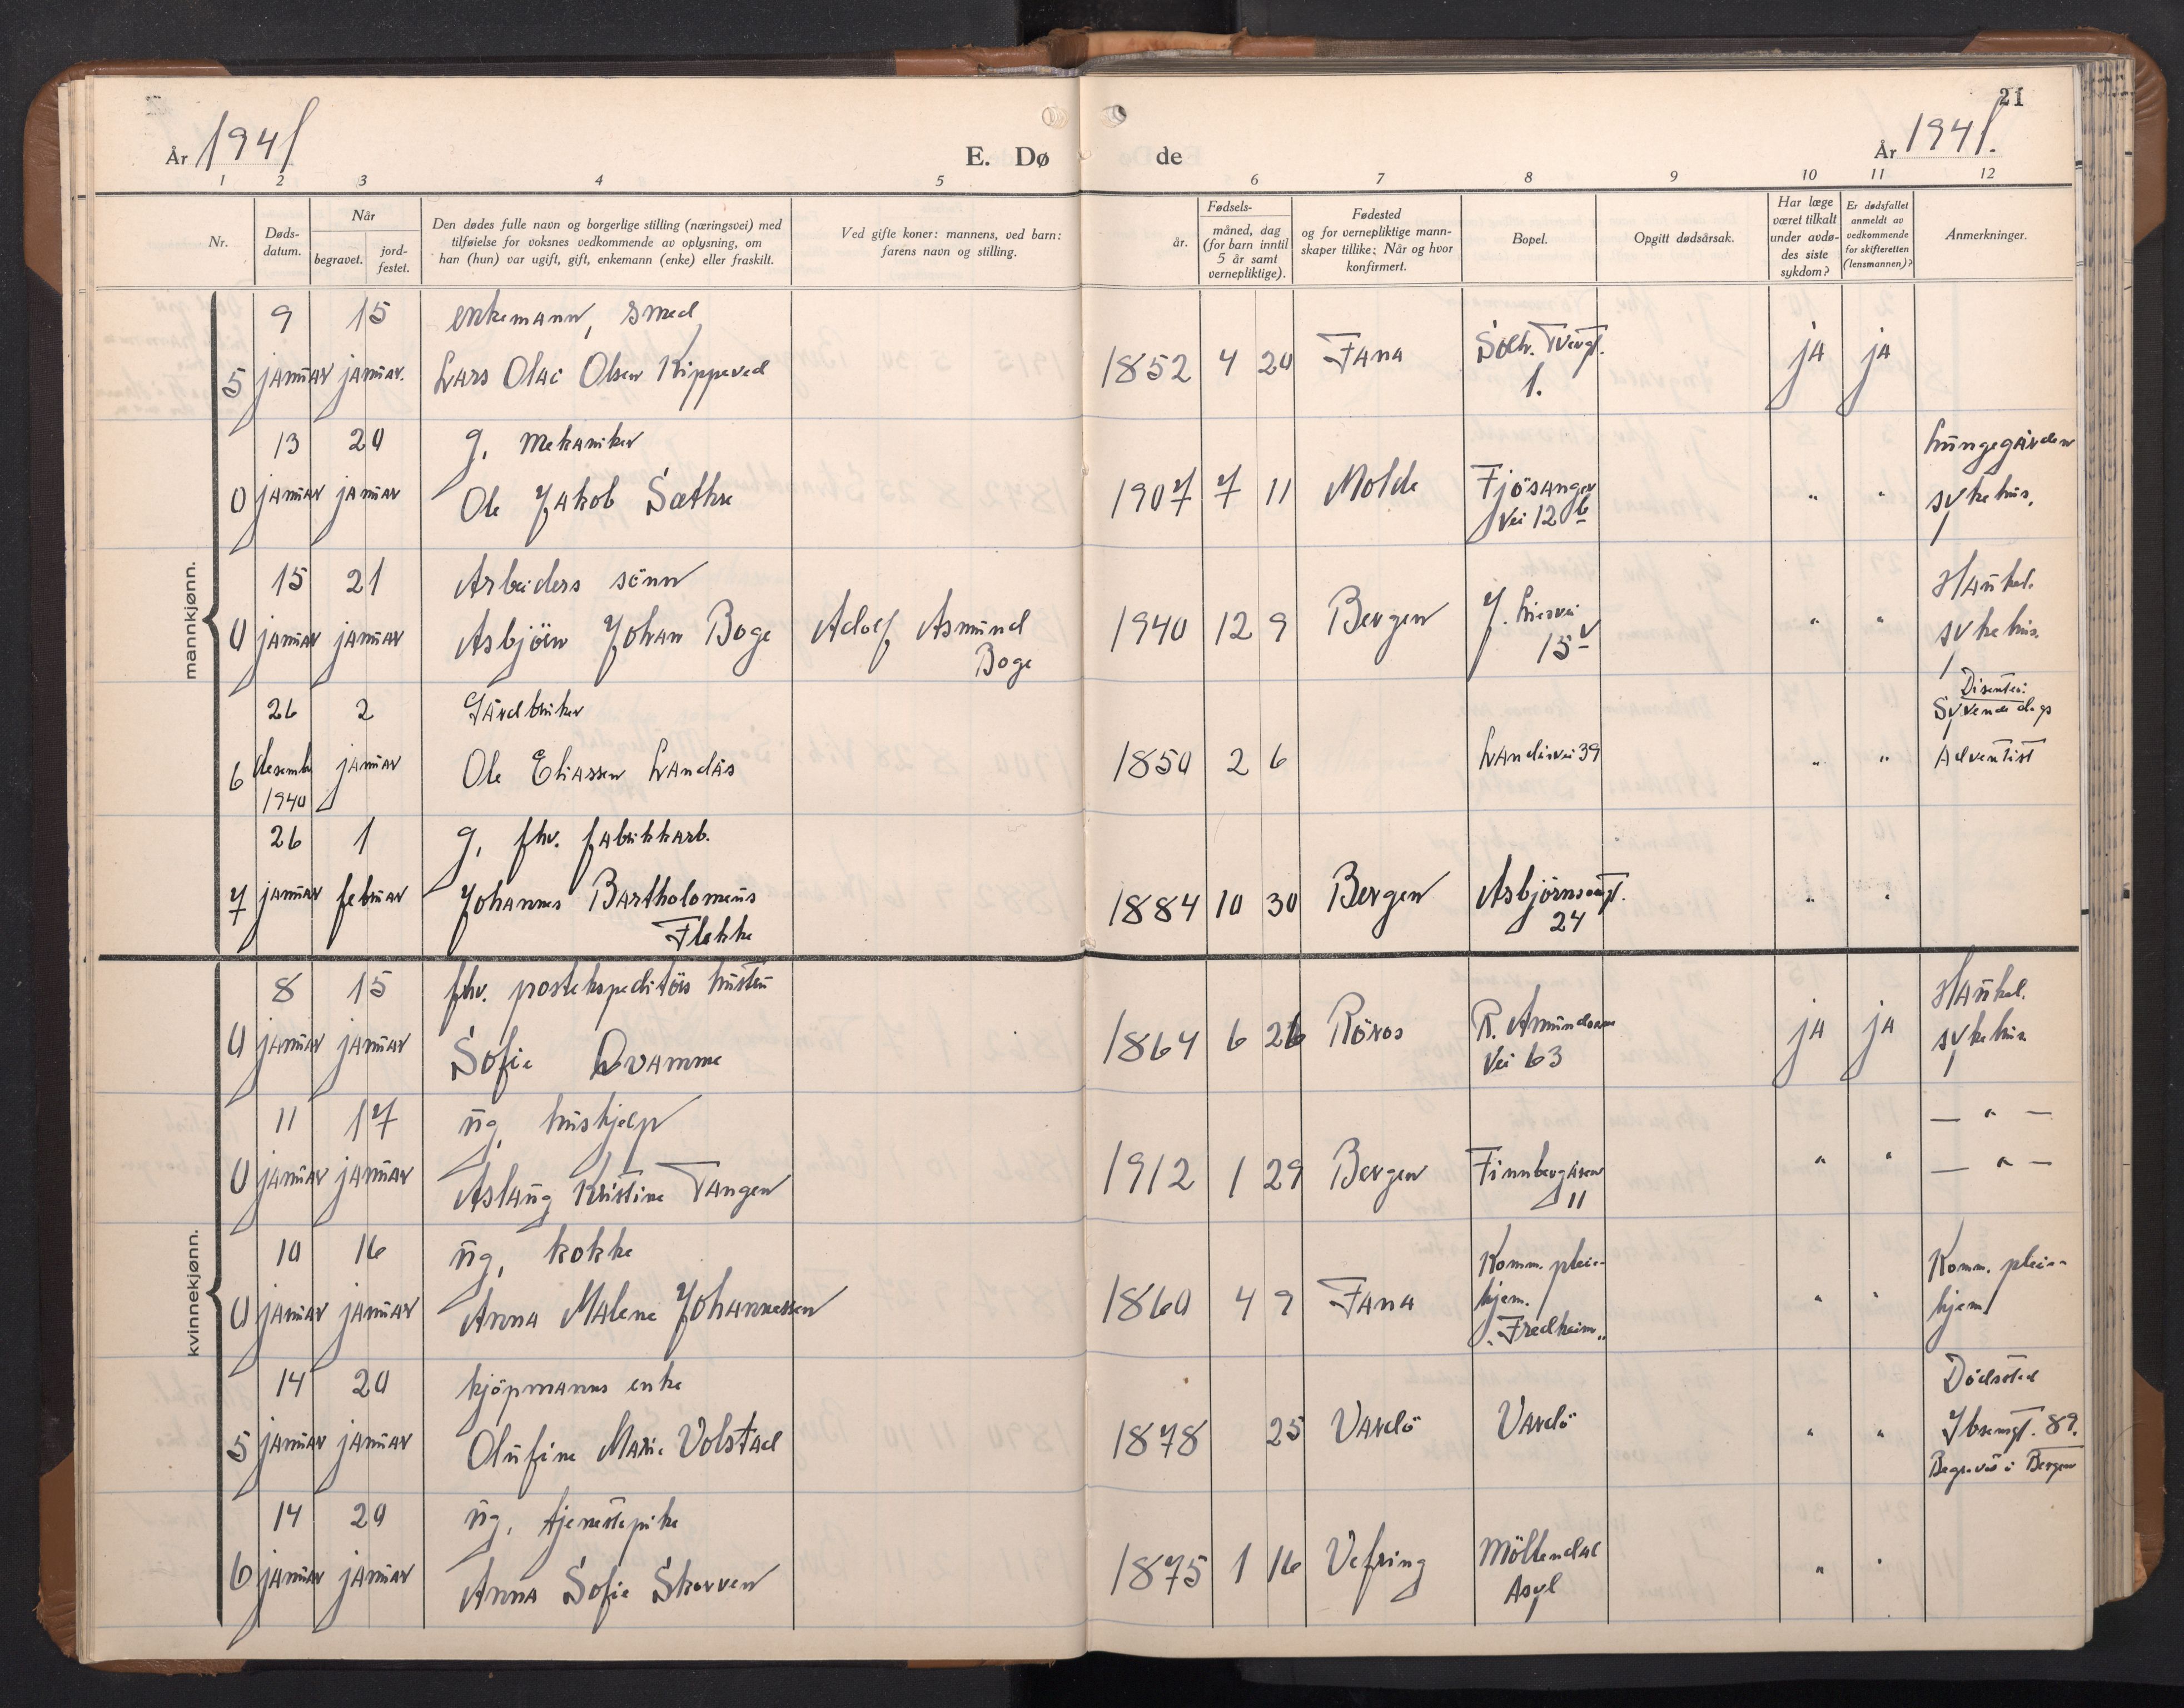 21
År 1941
E. Dø
de
År 1941.
1 2 3 4 5
6 7 8 9 10 11 12
Nr.
Døds-
datum.
Når
begravet.
jord-
festet.
Den dødes fulle navn og borgerlige stilling (næringsvei) med
tilføielse for voksnes vedkommende av oplysning, om
han (hun) var ugift, gift, enkemann (enke) eller fraskilt.
Ved gifte koner: mannens, ved barn:
farens navn og stilling.
Fødsels-
år.
måned, dag
(for barn inntil
5 år samt
vernepliktige).
Fødested
og for vernepliktige mann-
skaper tillike: Når og hvor
konfirmert.
Bopel.
Opgitt dødsårsak.
Har læge
været tilkalt
under avdø-
des siste
sykdom?
Er dødsfallet
anmeldt av
vedkommende
for skifteretten
(lensmannen)?
Anmerkninger.
mannkjønn.
9 15 enkemann, smed
5 januar januar. Lars Olai Olsen Kippeved
1852 4 20 Fana
1.
ja ja
13 20 g. mekaniker
0 januar januar Ole Jakob Sæthre
1907 7 11 Molde Fjösanger
vei 12 b
" "
Lungegården
sykehus.
15 21 Arbeiders sönn
0 januar januar Asbjörn Johan Boge Adolf Asmund
Boge
1940 12 9 Bergen J. Liesvei
15
" "
Haukel.
sykehus.
26 2 Gårdbruker
6 desember januar Ole Eliassen Landås
1940
1850 2 6 Landåsvei 39
" "
Disenter:
Syvende dags
Adventist
26 1 g. fhv. fabrikkarb.
7 januar februar Johannes Bartholomeus
Flekke
1884 10 30 Bergen Asbjörnsensgt.
24
" "
kvinnekjønn.
8 15 fhv. postekspeditörs hustru
0 januar januar Sofie Qvamme
1864 6 26 Röros R. Amundsens
vei 63
ja ja
Haukel.
sykehus
11 17 ug. hushjelp
0 januar januar Aslaug Kristine Tangen
1912 1 29 Bergen Finnbergåsen
11
" "
— " —
— " —
10 16 ug. kokke
0 januar januar Anna Malene Johannessen
1860 4 9 Fana Komm. pleie-
hjem.
"Fredheim"
" "
Komm. pleie-
hjem
14 20 kjöpmanns enke
5 januar januar Olufine Marie Volstad
1878 25 Vardö Vardö
" "
Dödssted
Ibsensgt. 89.
Begraves i Bergen
14 20 ug. tjenestepike
6 januar januar Anna Sofie Skorven
1875 1 16 Vefring Möllendal
Asyl
" "